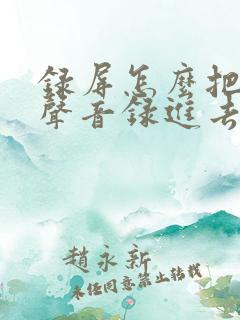 録屏怎麼把
聲音録進去
趙永新
未任同意禁止转载